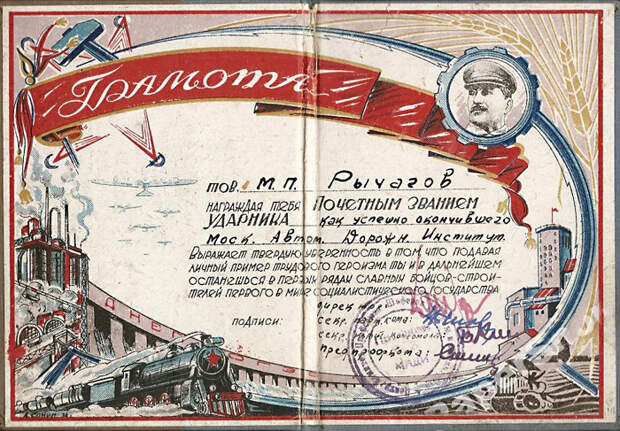 Грамота
тов. М.П. Рычагов
награждая тебя почетным званием
ударника как успешно окончившего
Моск. Автом. Дорожн. Институт.
Выражает твердую уверенность в том, что подавая
личный пример трудового героизма ты и в дальнейшем
останешься в первых рядах славных бойцов-строи-
телей первого в мире социалистического государства
подписи:
секр. парт. кома:
предпрофкома: